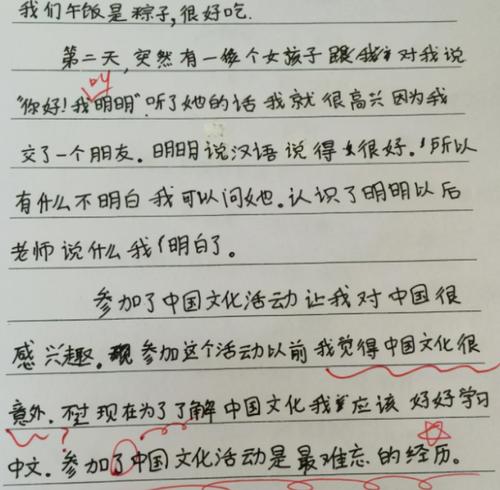 我们午饭是粽子,很好吃.
第二天,突然有一个女孩子跟我对我说
叫
"你好!我明明".听了她的话我就很高兴因为我
交了一个朋友.明明说汉语说得很好.所以
有什么不明白我可以问她.认识了明明以后
老师说什么我明白了。
参加了中国文化活动让我对中国很
感兴趣.参加这个活动以前我觉得中国文化很
意外.不过现在为了了解中国文化我应该好好学习
?
中文.参加了中国文化活动是最难忘的经历。